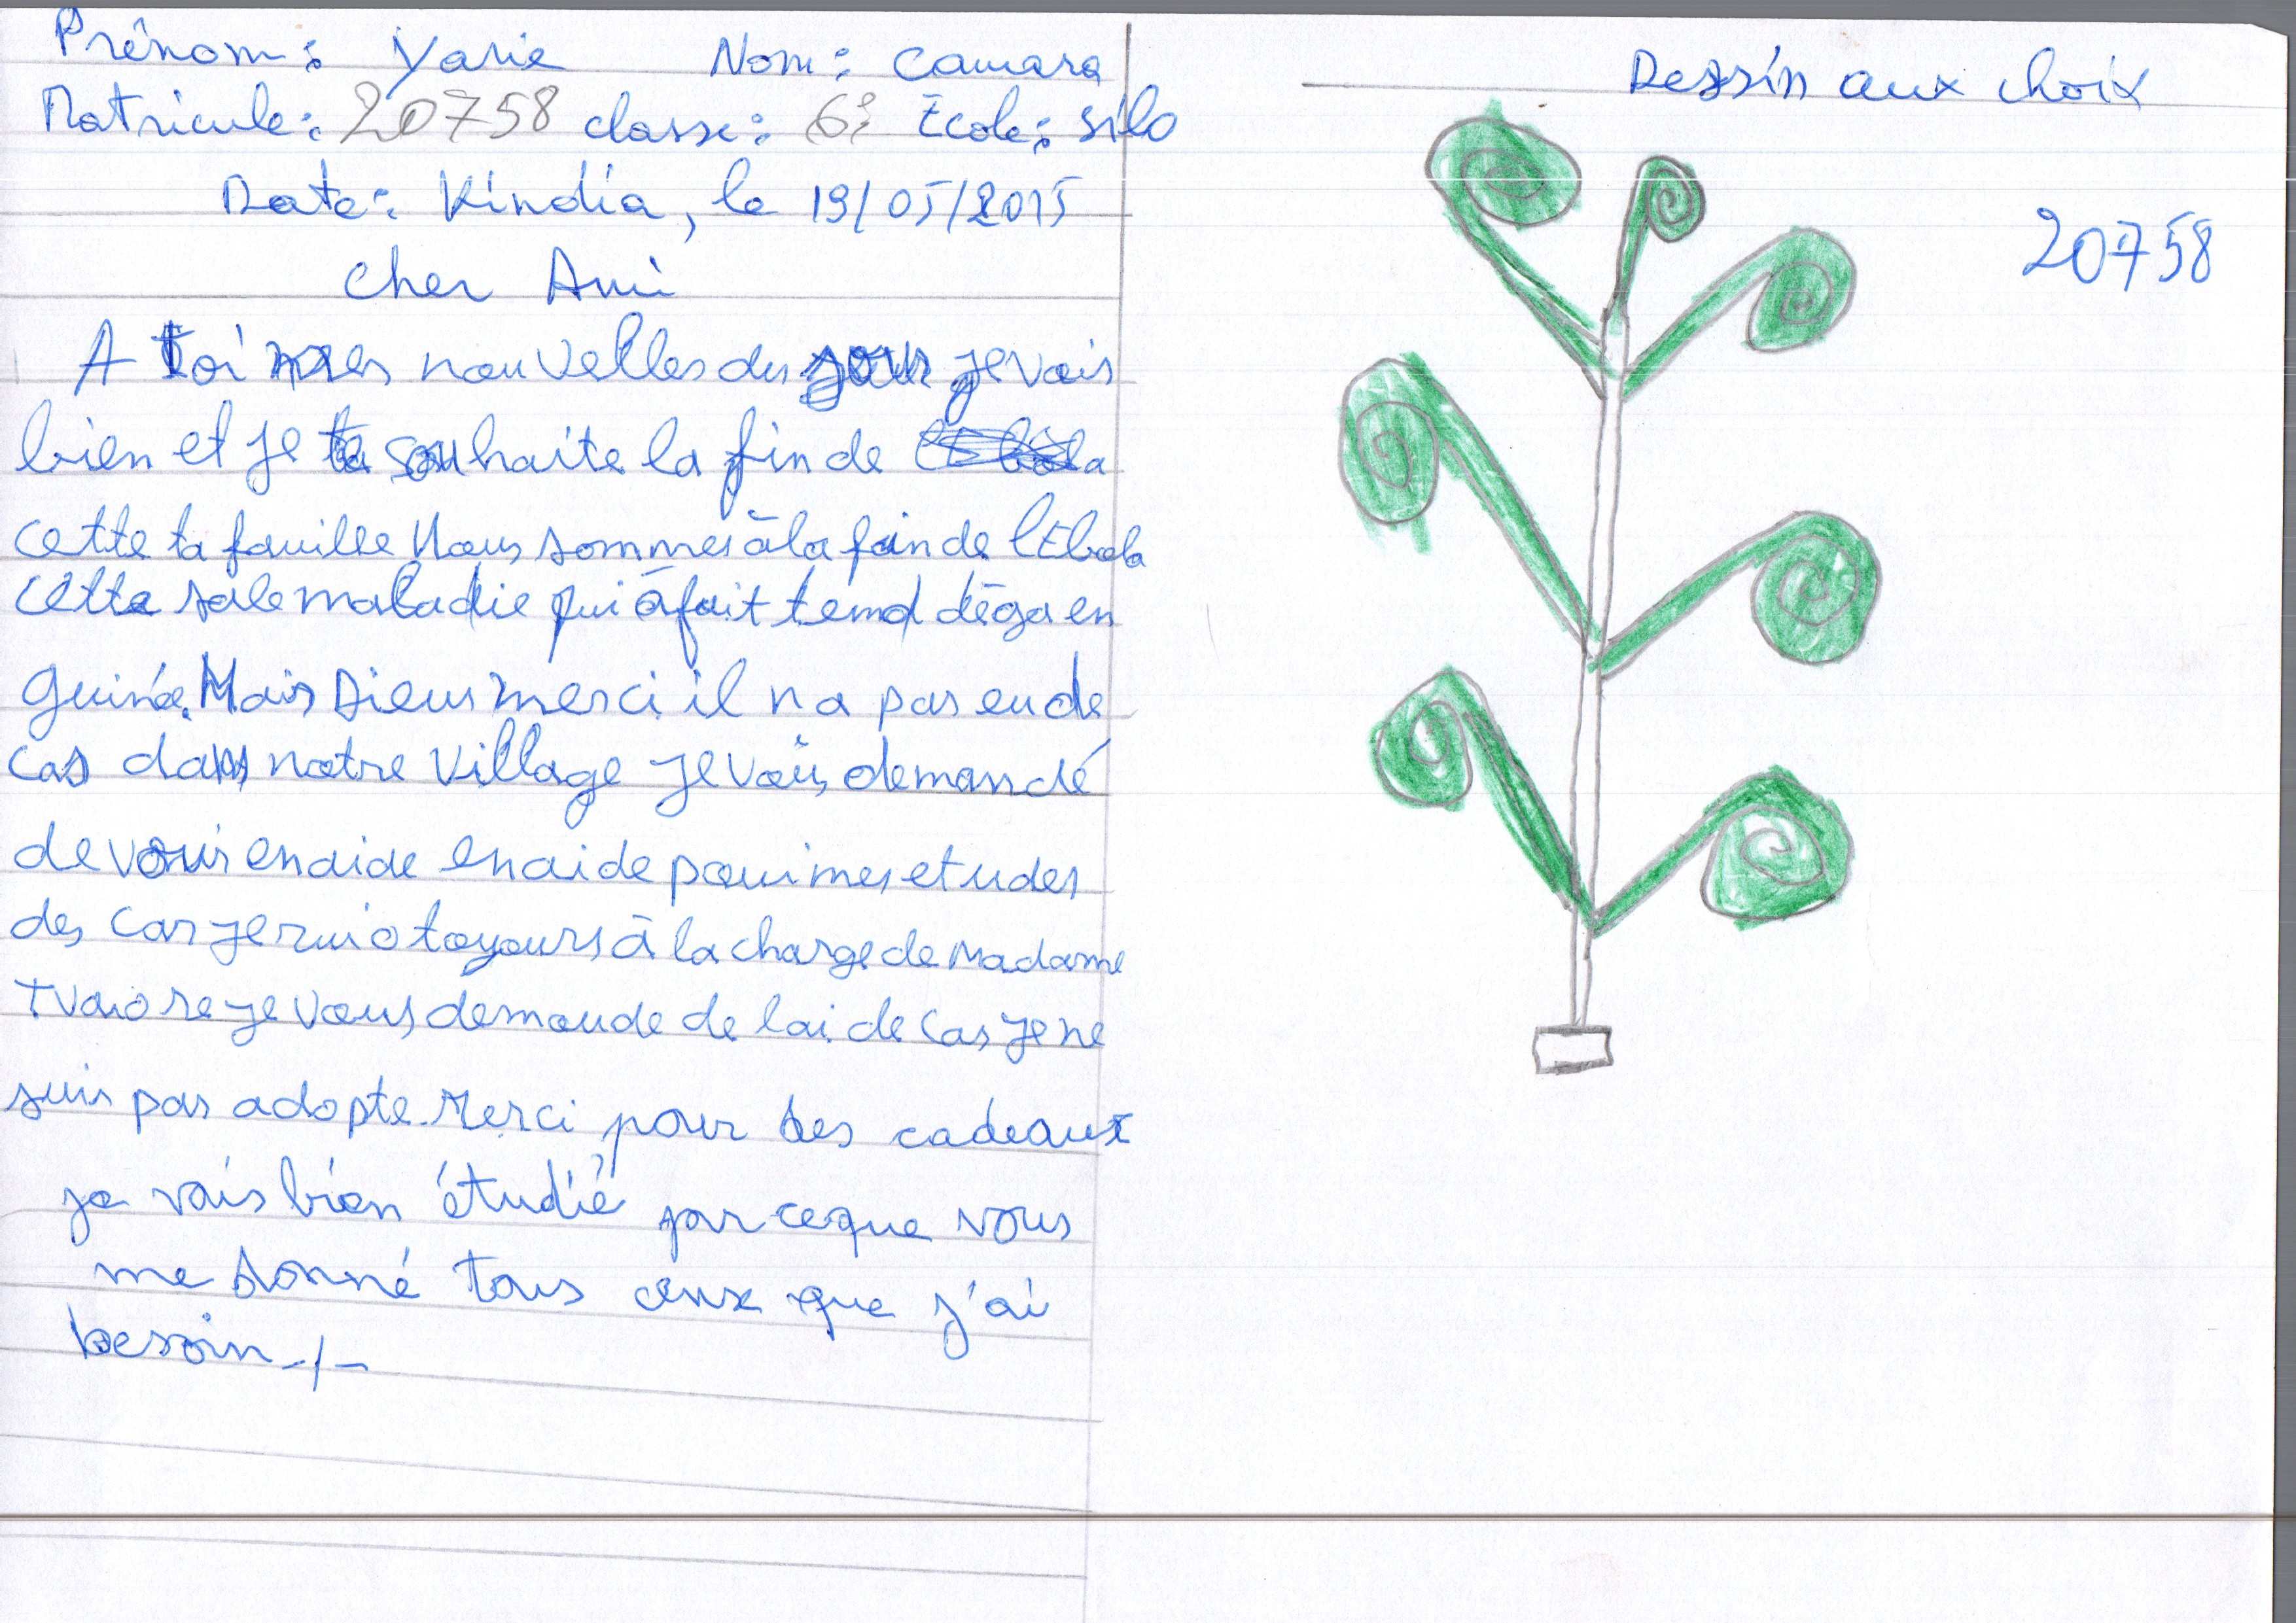 Prénom: Yarie Nom: Camara
Matricule: 20758 classe: 6è École: Silo
Date: Kindia, le 19/05/2015
Cher Ami
A toi mes nouvelles du jour je vais
bien et je te souhaite la fin de
cette ta famille Nous sommes à la fin de l'Ebola
cette sale maladie qui à fait temd déga en
guinée. Mais Dieu merci il na pas eu de
cas dans notre village je vais demandé
de vour en aide en aide pour mes etudes
des car je suis toyours à la charge de Madame
je vous demande de lai de cas je ne
suis pas adopte. Merci pour tes cadeaux
je vais bien étudié parceque vous
me donné tous ceux que j'ai
besoin -/-
Dessin aux choix
20758